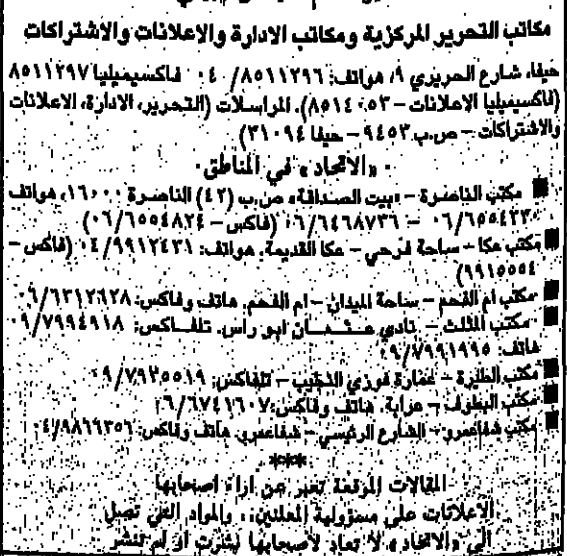 مكاتب التحرير المركزية ومكاتب الادارة والاعلانات والاشتراكات
حيفا، شارع الحريري ٩، هواتف: ٨٥١١٢٩٦/ ٠٤ فاكسيميليا ٨٥١١٢٩٧
(فاكسيميليا الاعلانات – ٨٥١٤٠٥٣). المراسلات (التحرير، الادارة، الاعلانات
والاشتراكات – ص.ب ٩٤٥٣ – حيفا ٣١٠٩٤)
• «الاتحاد» في المناطق •
■ مكتب الناصرة – «بيت الصداقة» ص.ب (٤٢) الناصرة ١٦٠٠٠، هواتف
٠٦/٦٥٥٤٢٣٠ – ٠٦/٦٤٦٨٧٣٦ (فاكس – ٠٦/٦٥٥٤٨٢٤)
■ مكتب عكا – ساحة فرحي – عكا القديمة. هواتف: ٠٤/٩٩١٢٤٣١ (فاكس –
٩٩١٥٥٥٤)
■ مكتب ام الفحم – ساحة الميدان – ام الفحم. هاتف وفاكس: ٠٦/٦٣١٢٦٢٨
■ مكتب المثلث – نادي عثمان ابو راس. تلفاكس: ٠٩/٧٩٩٤٩١٨
هاتف: ٠٩/٧٩٩١٩٩٥
■ مكتب الطيرة – عمارة فوزي النقيب – تلفاكس: ٠٩/٧٩٣٥٥١٩
■ مكتب البطوف – عرابة. هاتف وفاكس: ٠٦/٦٧٤١٦٠٧
■ مكتب شفاعمرو – الشارع الرئيسي – شفاعمرو. هاتف وفاكس: ٠٤/٩٨٦٦٣٥٦
***
المقالات الموقعة تعبر عن اراء اصحابها
الاعلانات على مسؤولية المعلنين، والمواد التي تصل
الى «الاتحاد» لا تعاد لاصحابها نشرت او لم تنشر